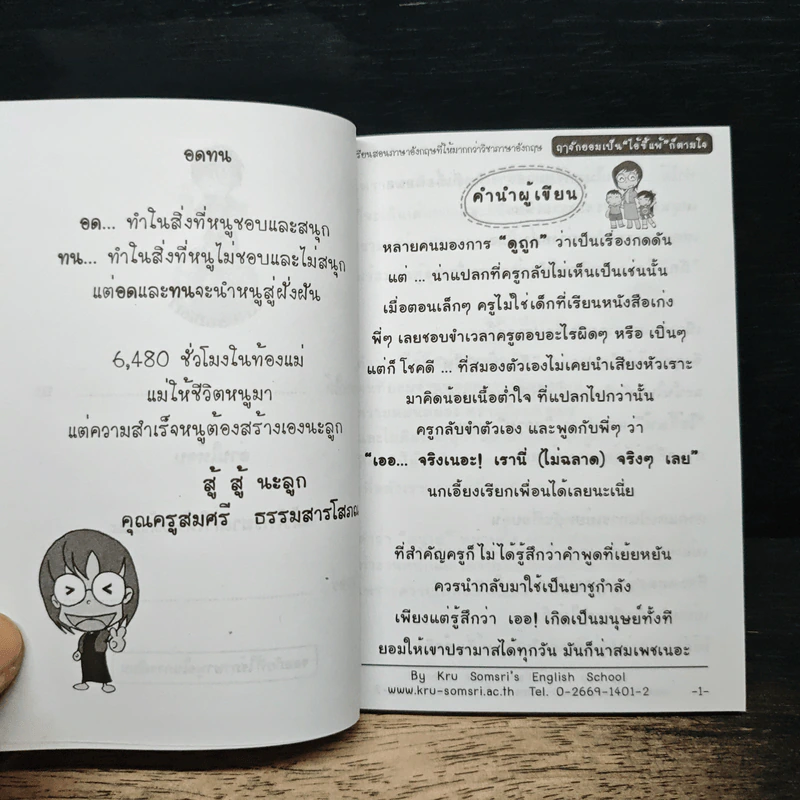 อดทน
อด... ทำในสิ่งที่หนูชอบและสนุก
ทน... ทำในสิ่งที่หนูไม่ชอบและไม่สนุก
แต่อดและทนจะนำหนูสู่ฝั่งฝัน
6,480 ชั่วโมงในท้องแม่
แม่ให้ชีวิตหนูมา
แต่ความสำเร็จหนูต้องสร้างเองนะลูก
สู้ สู้ นะลูก
คุณครูสมศรี ธรรมสารโสภณ
เรียนสอนภาษาอังกฤษที่ให้มากกว่าวิชาภาษาอังกฤษ
ฤๅจักยอมเป็น"ไอ้ขี้แพ้"ก็ตามใจ
คำนำผู้เขียน
หลายคนมองการ "ดูถูก" ว่าเป็นเรื่องกดดัน
แต่ ... น่าแปลกที่ครูกลับไม่เห็นเป็นเช่นนั้น
เมื่อตอนเล็กๆ ครูไม่ใช่เด็กที่เรียนหนังสือเก่ง
พี่ๆ เลยชอบขำเวลาครูตอบอะไรผิดๆ หรือ เปิ่นๆ
แต่ก็ โชคดี ... ที่สมองตัวเองไม่เคยนำเสียงหัวเราะ
มาคิดน้อยเนื้อต่ำใจ ที่แปลกไปกว่านั้น
ครูกลับขำตัวเอง และพูดกับพี่ๆ ว่า
"เออ... จริงเนอะ! เรานี่ (ไม่ฉลาด) จริงๆ เลย"
นกเอี้ยงเรียกเพื่อนได้เลยนะเนี่ย
ที่สำคัญครูก็ ไม่ได้รู้สึกว่าคำพูดที่เย้ยหยัน
ควรนำกลับมาใช้เป็นยาชูกำลัง
เพียงแต่รู้สึกว่า เออ! เกิดเป็นมนุษย์ทั้งที
ยอมให้เขาปรามาสได้ทุกวัน มันก็น่าสมเพชเนอะ
By Kru Somsri's English School
www.kru-somsri.ac.th Tel. 0-2669-1401-2 -1-